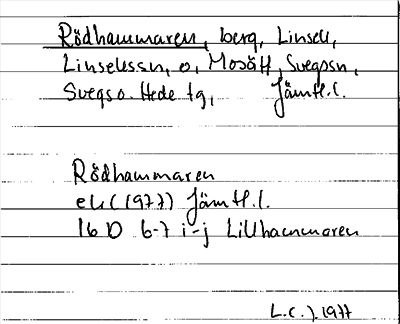 Rödhammaren, berg, Linsell,
Linsellssn, o, Mosätt, Svegssn,
Svegs o. Hede tg, Jämtl.l.
Rödhammaren
ek (1977) Jämtl.l.
16 D 6-7 i-j Lillhammaren
L.C.J. 1977